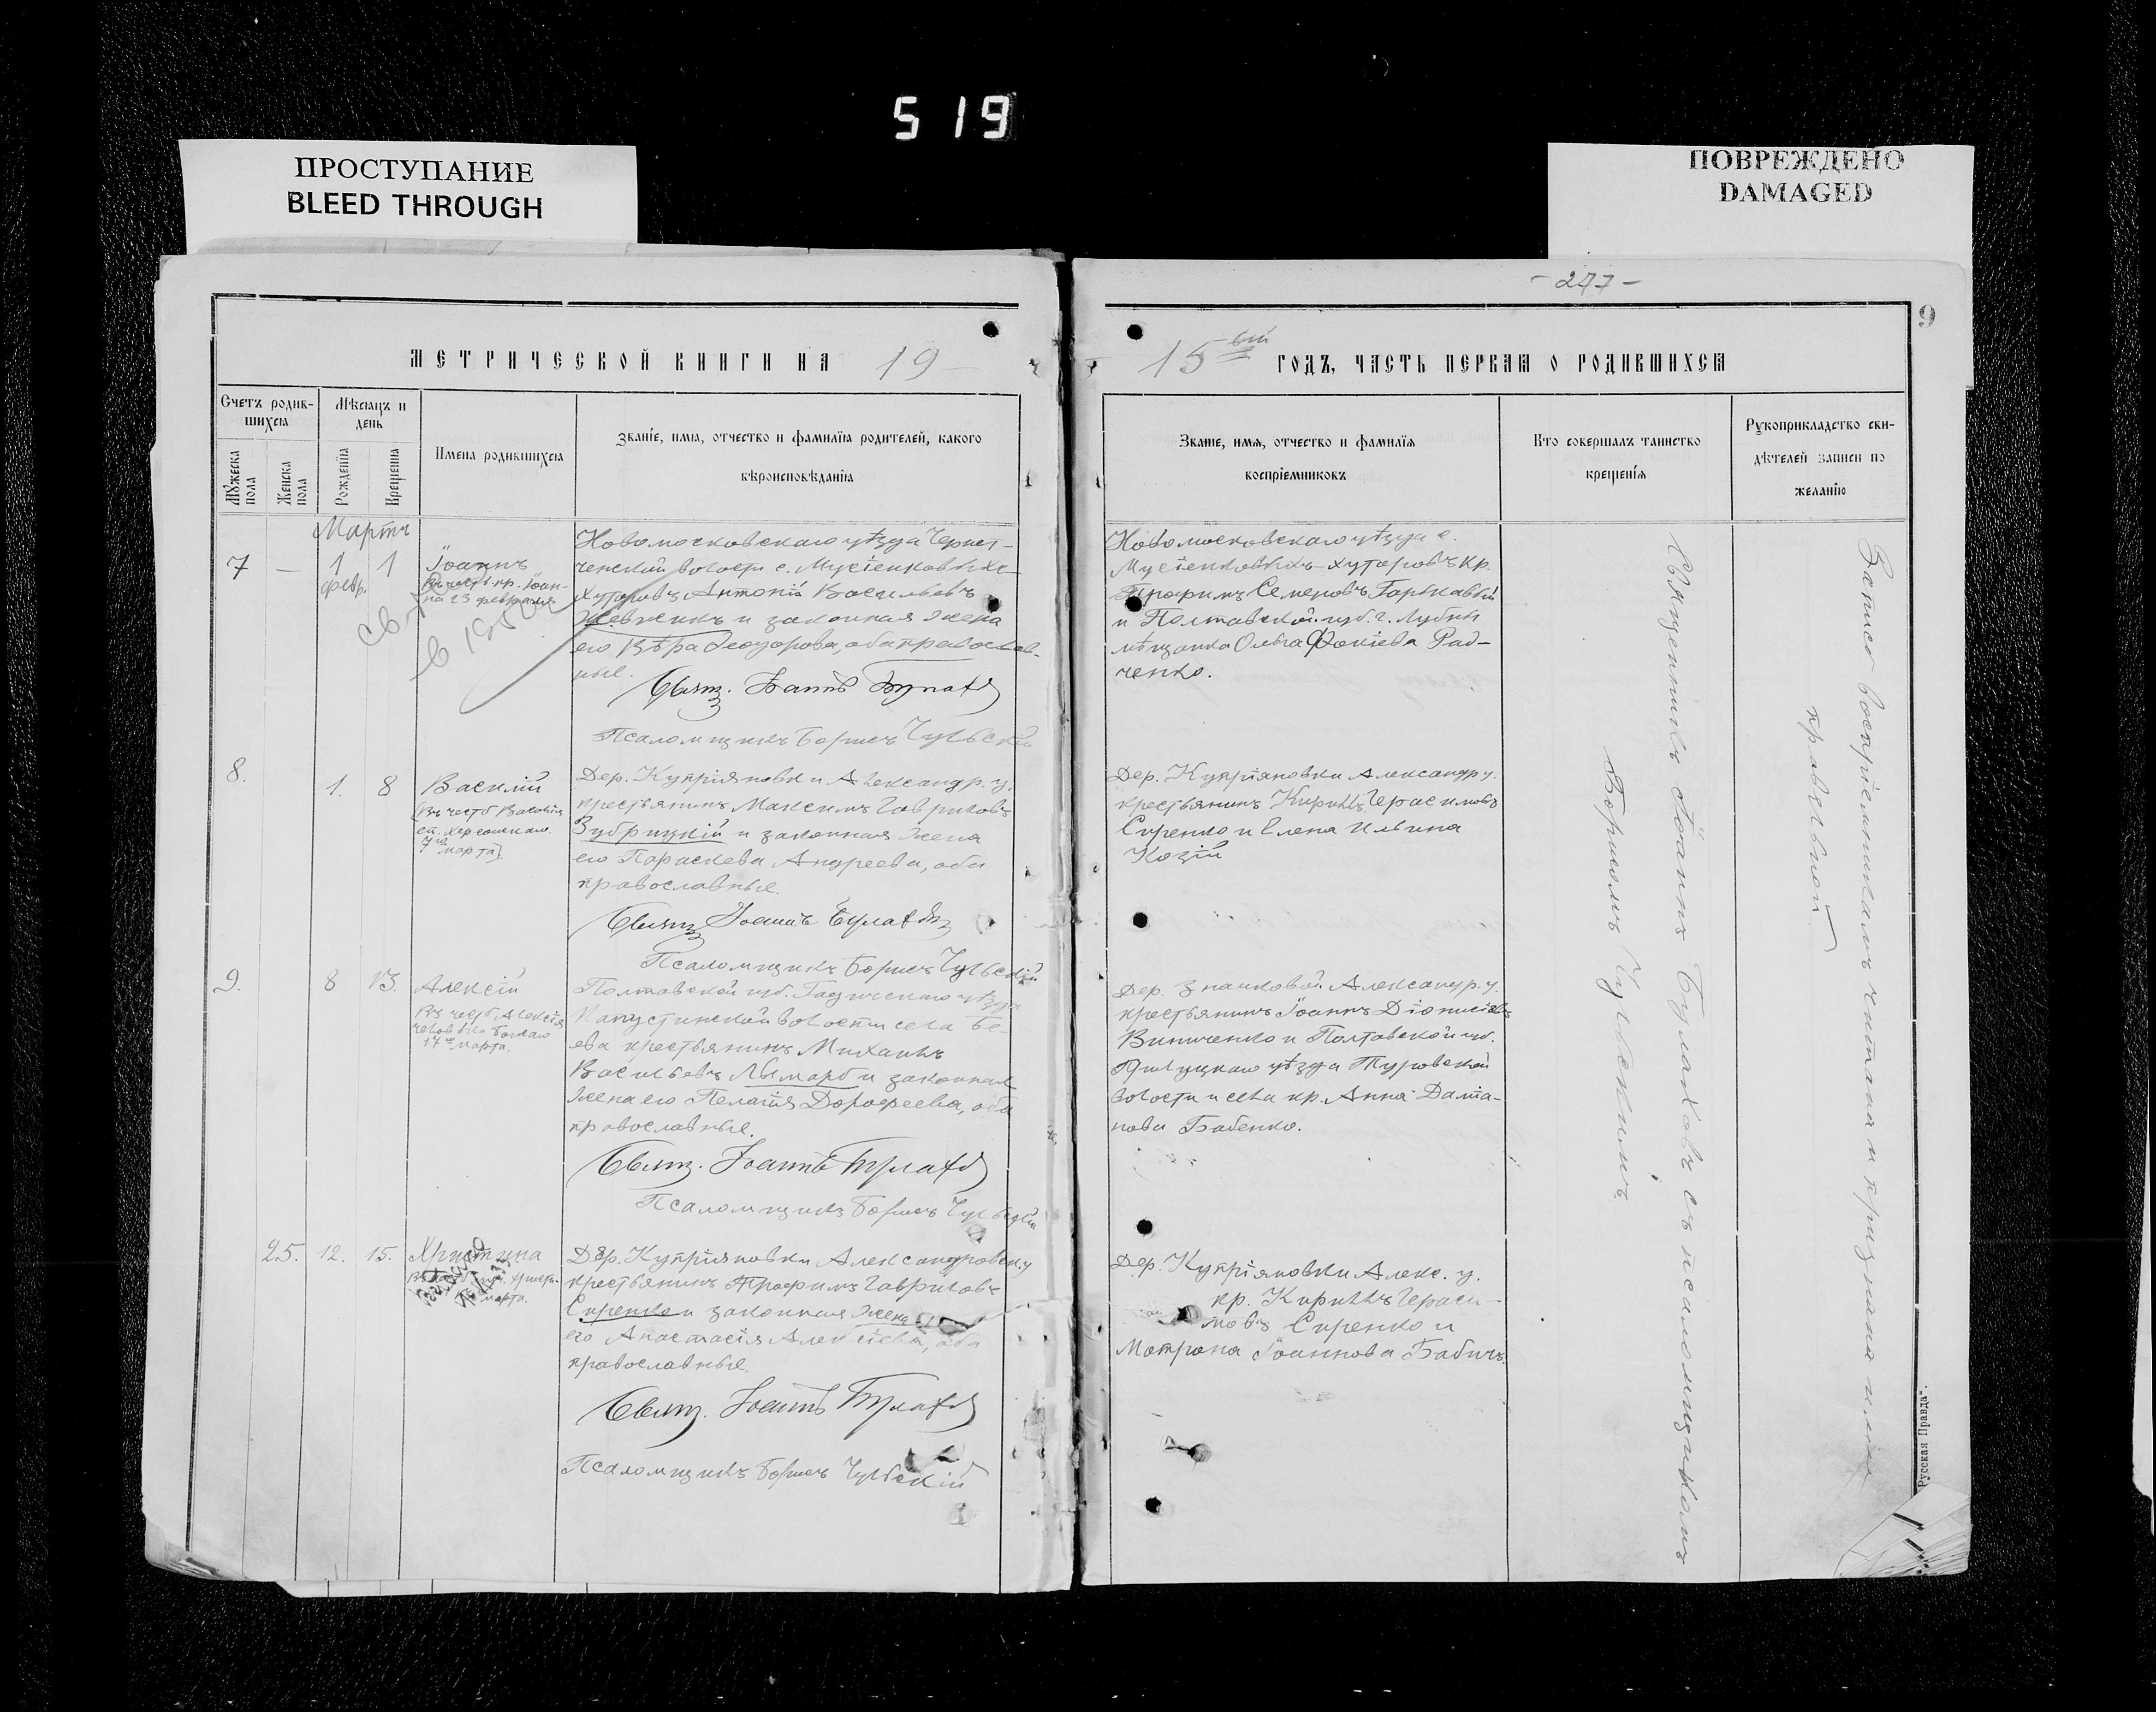 519
ПРОСТУПАНИЕ
BLEED THROUGH
ПОВРЕЖДЕНО
DAMAGED
- 277 -
9
МЕТРИЧЕСКОЙ КНИГИ НА 19
Счетъ родив-
шихся
Мѣсяцъ и
день
Мужеска
пола
Женска
пола
Рожденія
Крещенія
Имена родившихся
Званіе, имя, отчество и фамилія родителей, какого
вѣроисповѣданія
Мартъ
7 — 1 1
февр.
Іоаннъ
Въ честь пр. Іоан-
на 23 февраля
Новомосковскаго уѣзда
волости с. Мусіенковыхъ
Хуторовъ Антоній Васильевъ
Шевченкъ и законная жена
его Вѣра Ѳеодорова, оба православ-
ные.
Свящ. Іоаннъ Булаховъ
Псаломщикъ Борисъ Чульскій
8. 1. 8
Василій
Въ честь Василія
еп. Херсонскаго
7го марта
Дер. Купріяновки Александр. у.
крестьянинъ Максимъ Гавриловъ
Зубрицкій и законная жена
его Параскева Андреева, оба
православные.
Свящ. Іоаннъ Булаховъ
Псаломщикъ Борисъ Чульскій
9. 8 13.
Алексій
Въ честь Алексія
человѣка Божія
17го марта.
Полтавской губ. Гадячскаго уѣзда
Капустинской волости села Бе-
ева крестьянинъ Михаилъ
Васильевъ Лымарь и законная
жена его Пелагія Дорофеева, оба
православные.
Свящ. Іоаннъ Булаховъ
Псаломщикъ Борисъ Чульскій
25. 12. 15.
Христина
марта.
Дер. Купріяновки Александровск. у.
крестьянинъ Трофимъ Гавриловъ
Сиренко и законная жена
его Анастасія Алексіева, оба
православные.
Свящ. Іоаннъ Булаховъ
Псаломщикъ Борисъ Чульскій
15ый ГОДЪ, ЧАСТЬ ПЕРВАЯ О РОДИВШИХСЯ
Званіе, имя, отчество и фамилія
воспріемниковъ
Кто совершалъ таинство
крещенія
Рукоприкладство сви-
дѣтелей записи по
желанію
Новомосковскаго уѣзда с.
Мусіенковыхъ-хуторовъ кр.
Трофимъ Семеновъ Горькавый
и Полтавской губ. г. Лубны
мѣщанка Ольга Фокіева Рад-
ченко.
Дер. Купріяновки Александр. у.
крестьянинъ Кириллъ Герасимовъ
Сиренко и Елена Ильина
Козій
Дер. Александр. у.
крестьянинъ Іоаннъ Діонисіевъ
Винниченко и Полтавской губ.
Прилуцкаго уѣзда Туровской
волости и села кр. Анна Даміа-
нова Бабенко.
Дер. Купріяновки Алекс. у.
кр. Кириллъ Гераси-
мовъ Сиренко и
Мотрона Іоаннова Бабичъ.
Священникъ Іоаннъ Булаховъ съ псаломщикомъ
Борисомъ Чульскимъ.
Запись воспріемникамъ читана и признана ими
правильной
Русская Правда".